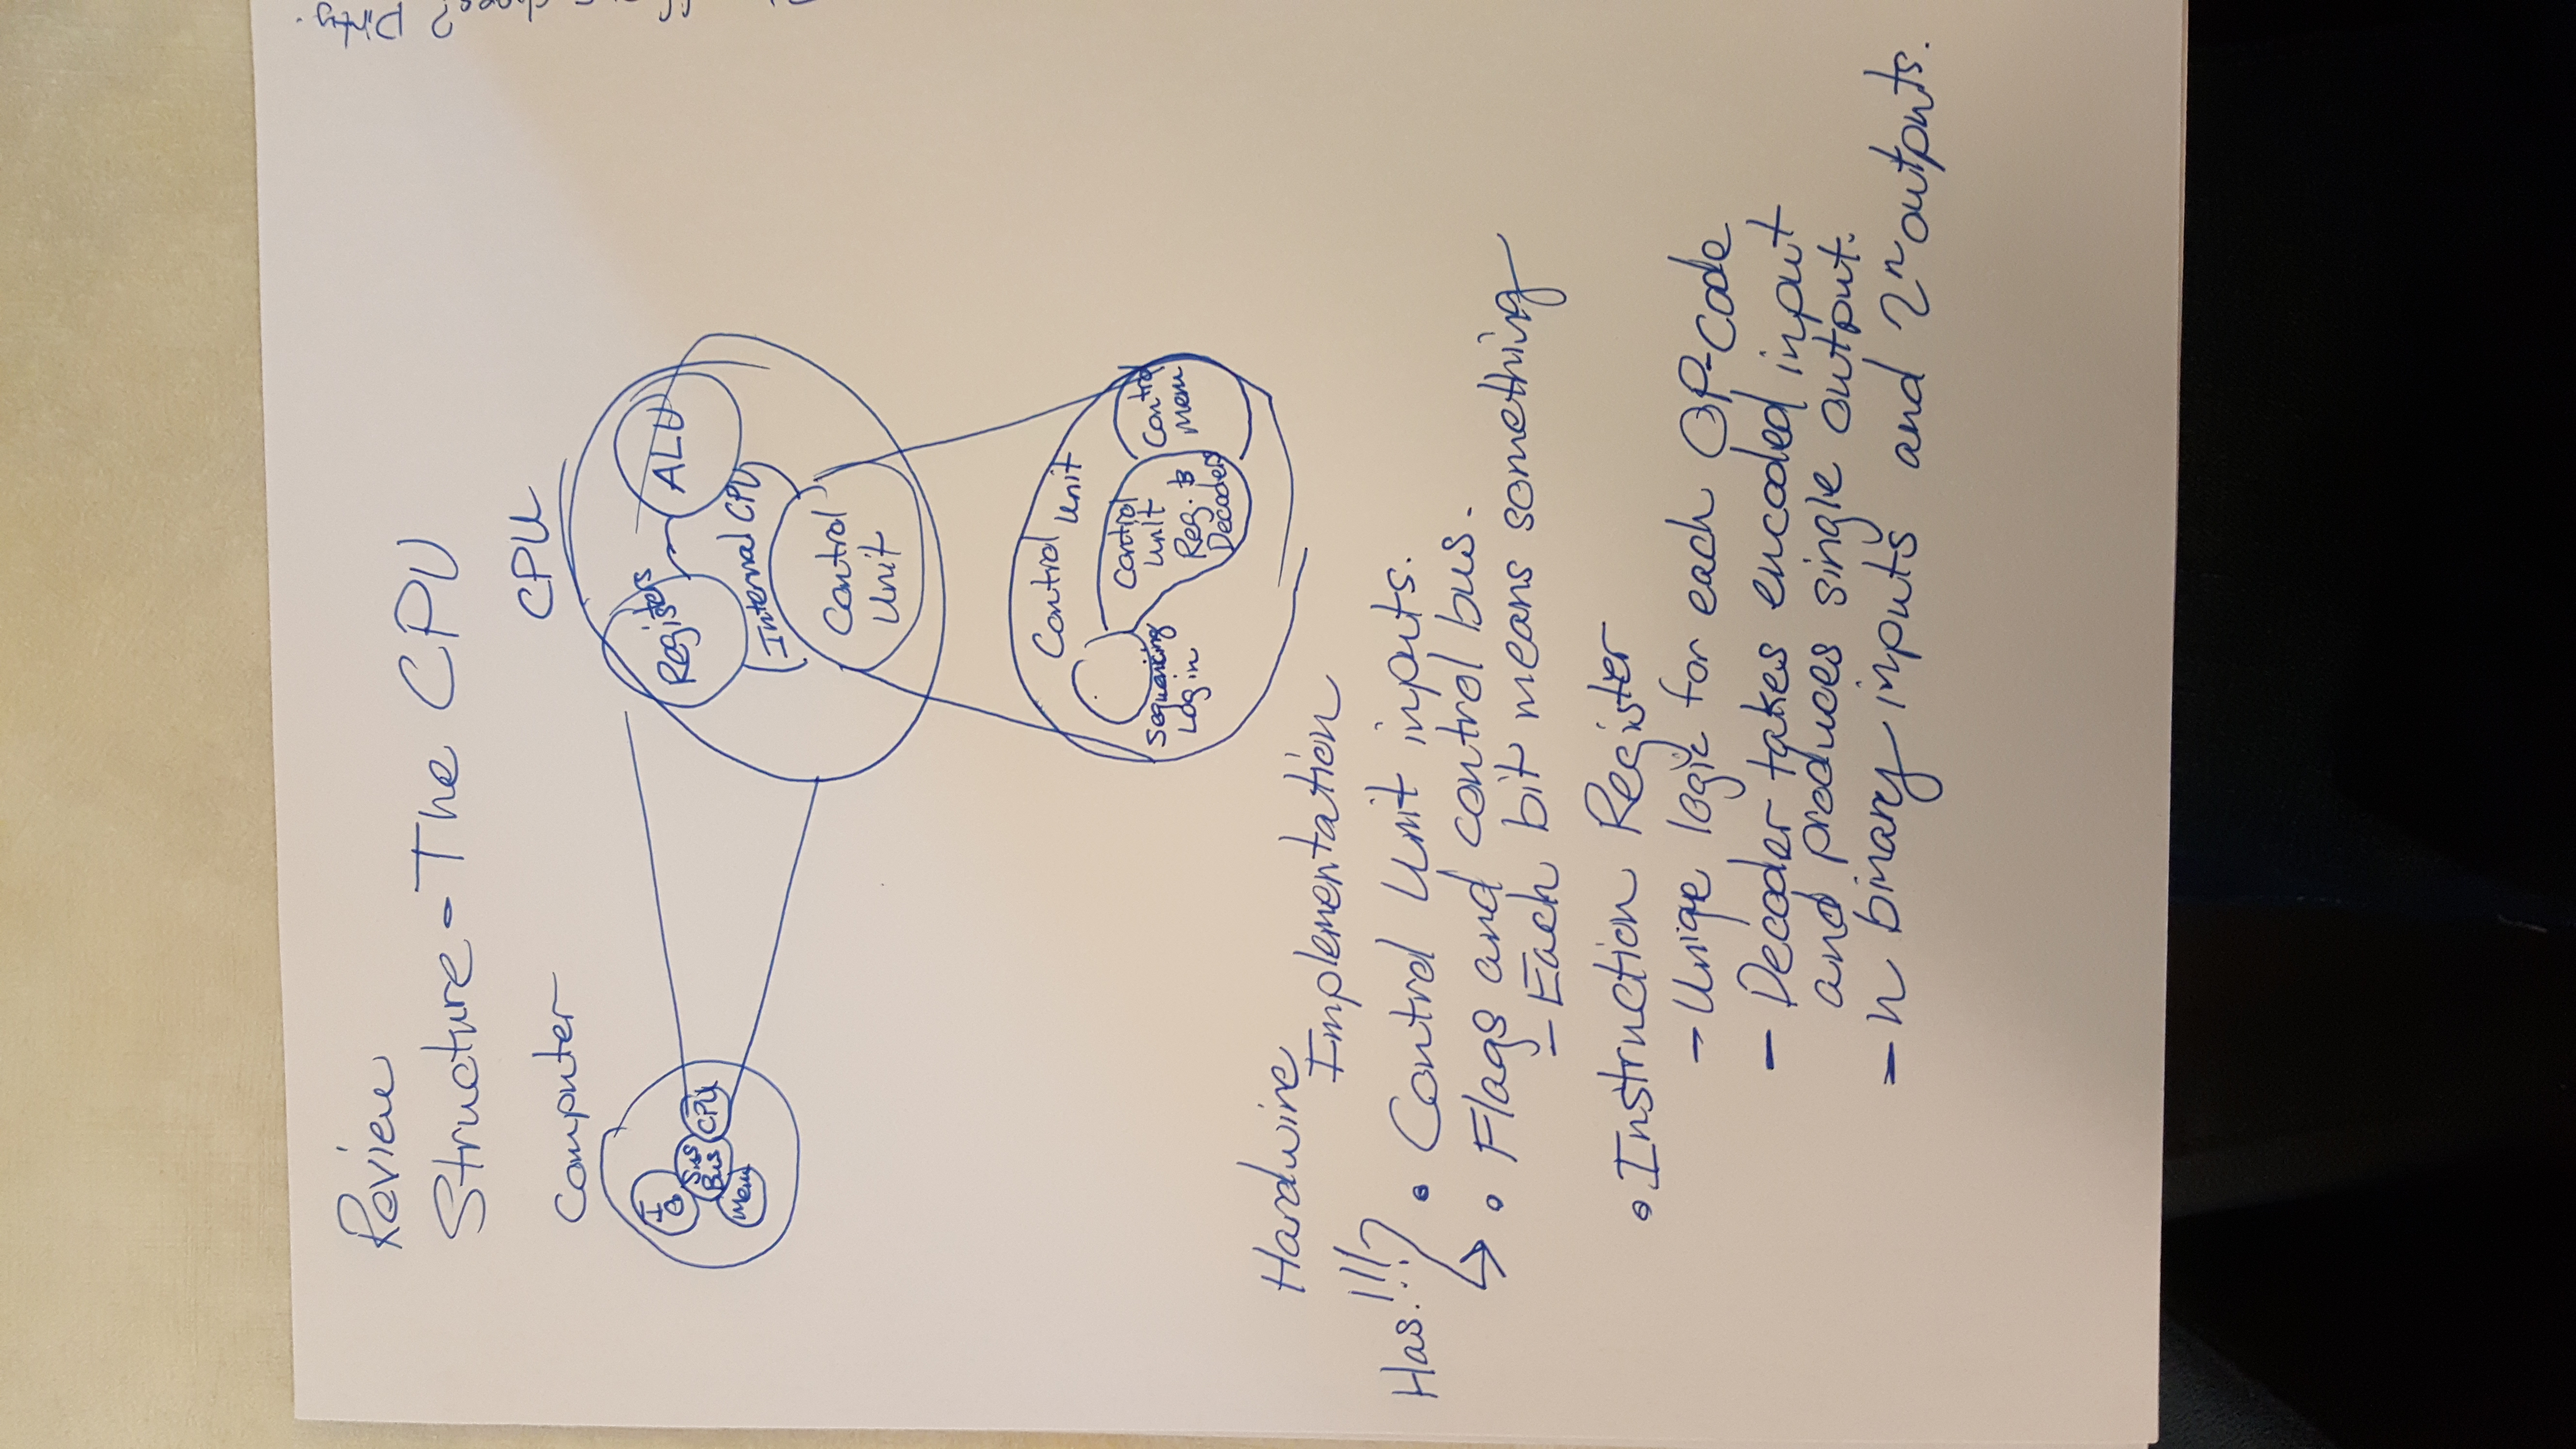 Review
Structure - The CPU
Computer
I
O
Sys
Bus
CPU
Mem
CPU
Registers
ALU
Internal CPU
Control
Unit
Control Unit
Sequencing
Login
Control
Unit
Reg. &
Decoders
Control
Mem
Hardwire
Implementation
Has!!!
• Control Unit inputs.
• Flags and control bus.
- Each bit means something
• Instruction Register
- Unique logic for each OP-code
- Decoder takes encoded input
and produces single output.
- n binary inputs and 2ⁿ outputs.
Dirty.